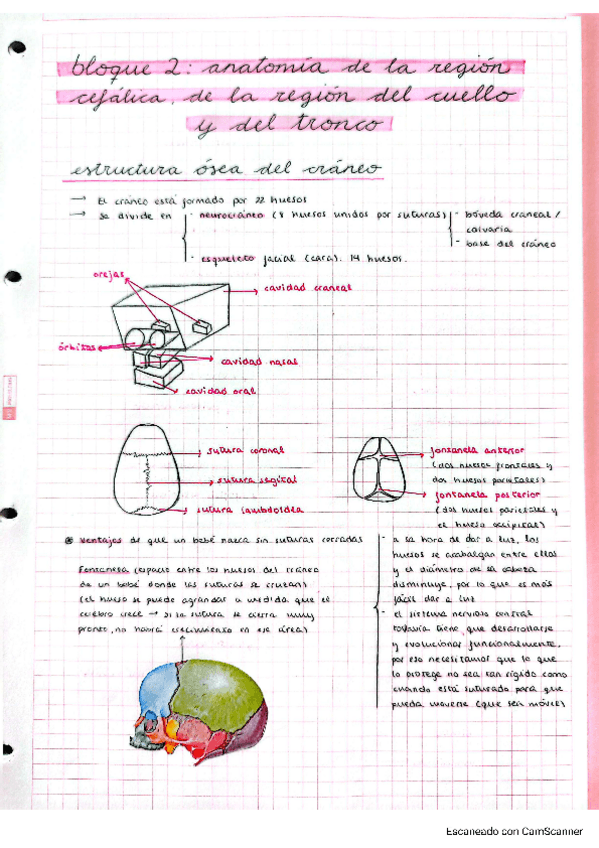 bloque 2: anatomía de la región
cefálica, de la región del cuello
y del tronco
estructura ósea del cráneo
→ El cráneo está formado por 22 huesos
→ Se divide en
- neurocráneo (8 huesos unidos por suturas)
- bóveda craneal /
calvaria
- base del cráneo
- esqueleto facial (cara). 14 huesos.
orejas
cavidad craneal
órbitas
cavidad nasal
cavidad oral
sutura coronal
sutura sagital
sutura lambdoidea
fontanela anterior
(dos huesos frontales y
dos huesos parietales)
fontanela posterior
(dos huesos parietales y
el hueso occipital)
Ventajas de que un bebé nazca sin suturas cerradas
Fontanela (espacio entre los huesos del cráneo
de un bebé donde las suturas se cruzan)
(el hueso se puede agrandar a medida que el
cerebro crece → si la sutura se cierra muy
pronto, no habrá crecimiento en ese área)
- a la hora de dar a luz, los
huesos se acabalgan entre ellos
y el diámetro de la cabeza
disminuye, por lo que es más
fácil dar a luz
- el sistema nervioso central
todavía tiene que desarrollarse
y evolucionar funcionalmente,
por eso necesitamos que lo que
lo protege no sea tan rígido como
cuando está suturado para que
pueda moverse (que sea móvil)
Escaneado con CamScanner